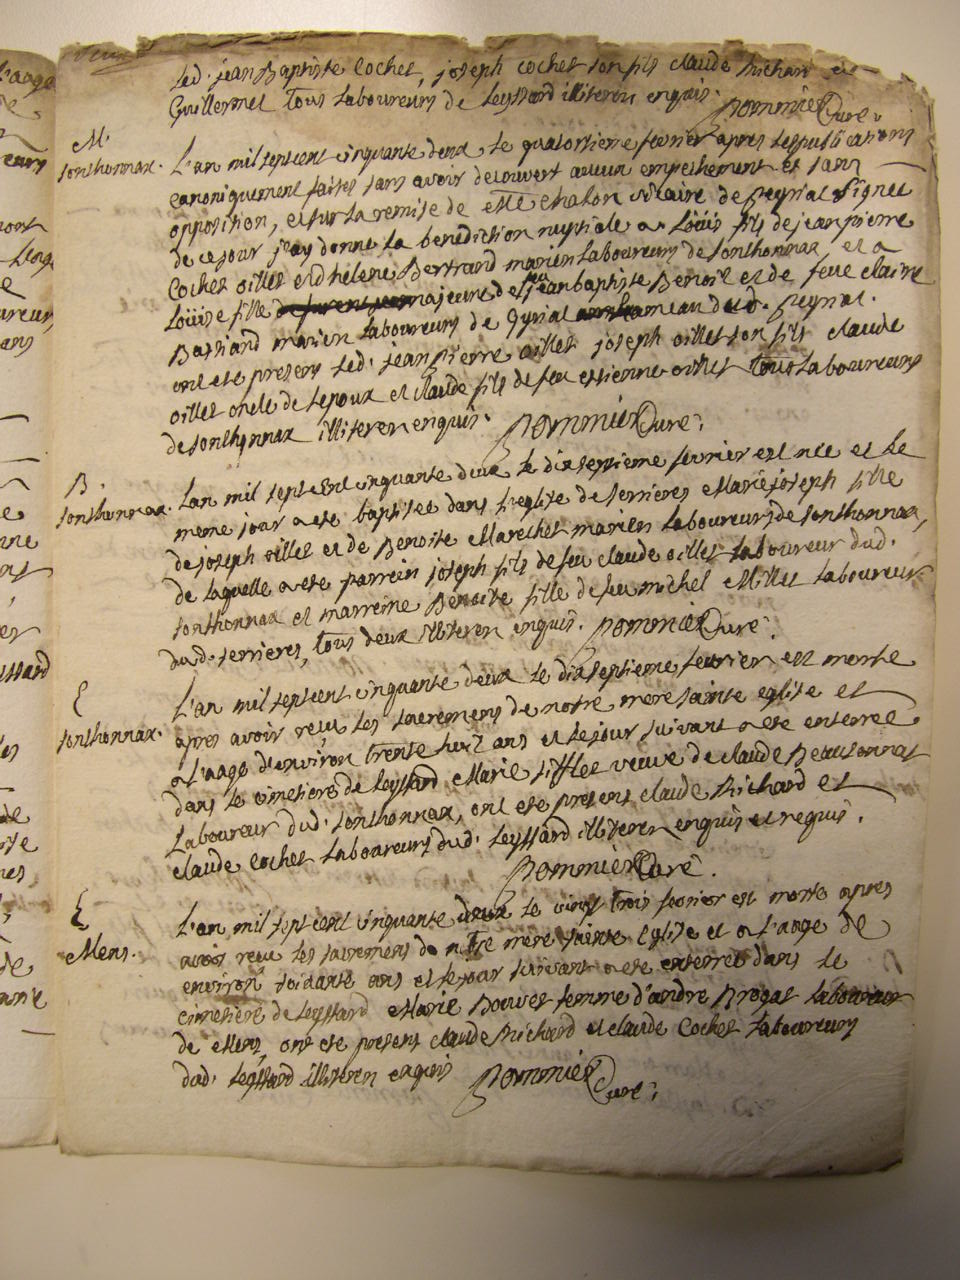 led. jean Baptiste Cochet, joseph cochet son fils claude Richard et
Guillermet tous laboureurs de Leyssard illiteres enquis. Pommier Curé.
M.
Sonthonnax.
L'an mil sept cent cinquante deux le quatorsieme fevrier apres les publications
canoniquement faites sans avoir decouvert aucun empechement et sans
opposition, et sur la remise de vicaire de Peyriat signée
de ce jour j'ay donné la benediction nuptiale a Loüis fils de jean pierre
Cochet oillet et d'helene Bertrand mariés laboureurs de Sonthonnax, et a
Loüise fille majeure de feu jean baptiste Benoit et de feue claire
Bassiand mariés laboureurs de hameau dud. Peyriat.
ont eté presens led. jean pierre oillet joseph oillet son fils claude
oillet oncle de l'epoux et claude fils de feu estienne oillet tous laboureurs
de Sonthonnax illiteres enquis. Pommier Curé.
B.
Sonthonnax.
L'an mil sept cent cinquante deux le dixseptieme fevrier est née et le
meme jour a eté baptisée dans l'eglise de serrieres Marie joseph fille
de joseph oillet et de Benoite Marechet mariés laboureurs de Sonthonnax,
de laquelle a eté parrein joseph fils de feu claude oillet laboureur dud.
Sonthonnax et marreine Benoite fille de feu michel Millet laboureur
dud. serrieres, tous deux illiteres enquis. Pommier Curé.
E
Sonthonnax.
L'an mil sept cent cinquante deux le dixseptieme fevrier est morte
apres avoir reçu les sacremens de notre mere sainte eglise et
a l'aage d'environ trente huit ans et le jour suivant a eté enterrée
dans le cimetiere de Leyssard Marie sifflet veuve de claude Beausonnet
Laboureur dud. Sonthonnax, ont eté presens claude Richard et
claude Cochet Laboureurs dud. Leyssard illiteres enquis et requis.
Pommier Curé.
E
Mens.
L'an mil sept cent cinquante deux le vingt trois fevrier est morte apres
avoir reçu les sacremens de notre mere sainte Eglise et a l'aage de
environ soixante ans et le jour suivant a eté enterrée dans le
cimetiere de Leyssard Marie Bouvet femme d'andre Brogat laboureur
de Mens, ont eté presens claude Richard et claude Cochet Laboureurs
dud. Leyssard illiteres enquis Pommier Curé.